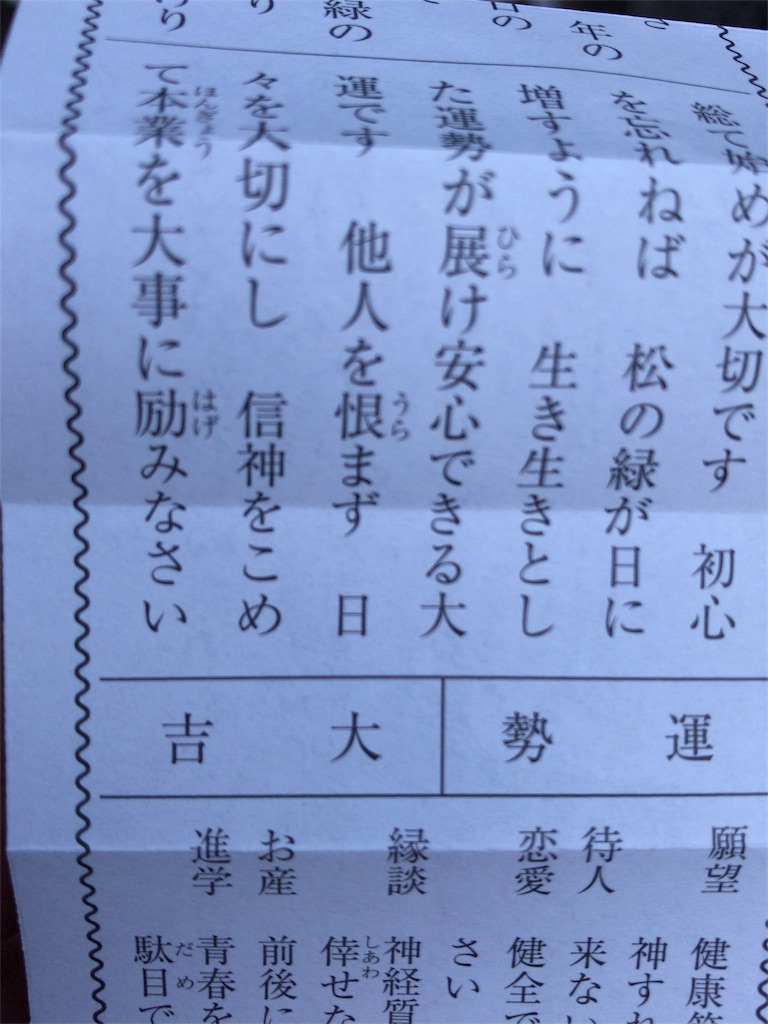 年の
日の
緑の
り
わり
総て始めが大切です 初心
を忘れねば 松の緑が日に
増すように 生き生きとし
た運勢が展け安心できる大
ひら
運です 他人を恨まず 日
うら
々を大切にし 信神をこめ
て本業を大事に励みなさい
ほんぎょう
はげ
運勢 大吉
願望 健康
神すれ
待人 来ない
恋愛 健全で
さい
縁談 神経質
倖せな
しあわ
お産 前後に
進学 青春を
駄目で
だめ